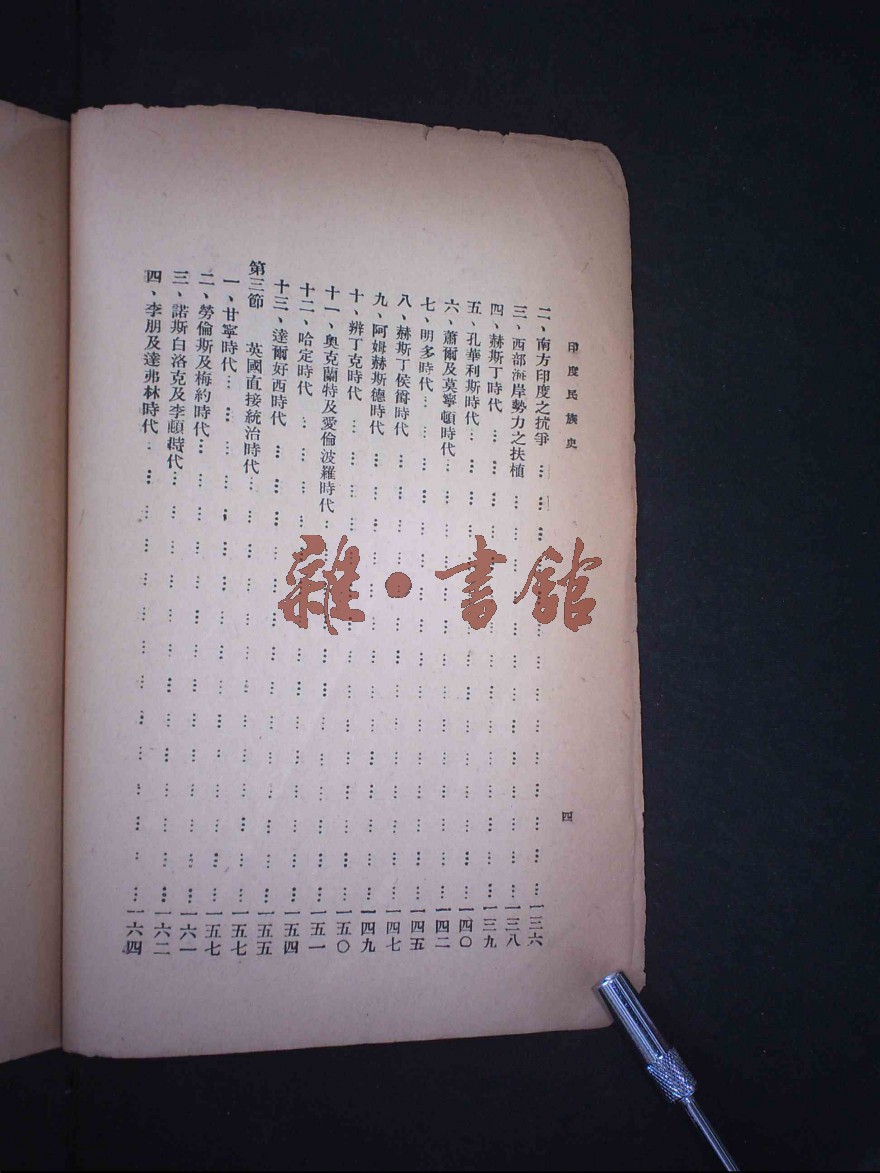 印度民族史
四
二、南方印度之抗爭………一三六
三、西部海岸勢力之扶植………一三八
四、赫斯丁時代………一三九
五、孔華利斯時代………一四〇
六、蕭爾及莫寧頓時代………一四二
七、明多時代………一四五
八、赫斯丁侯爵時代………一四七
九、阿姆赫斯德時代………一四九
十、辨丁克時代………一五〇
十一、奧克蘭特及愛倫波羅時代………一五一
十二、哈定時代………一五四
十三、達爾好西時代………一五五
第三節 英國直接統治時代………一五七
一、甘寧時代………一五七
二、勞倫斯及梅約時代………一六一
三、諾斯白洛克及李頓時代………一六二
四、李朋及達弗林時代………一六四
雜·書館